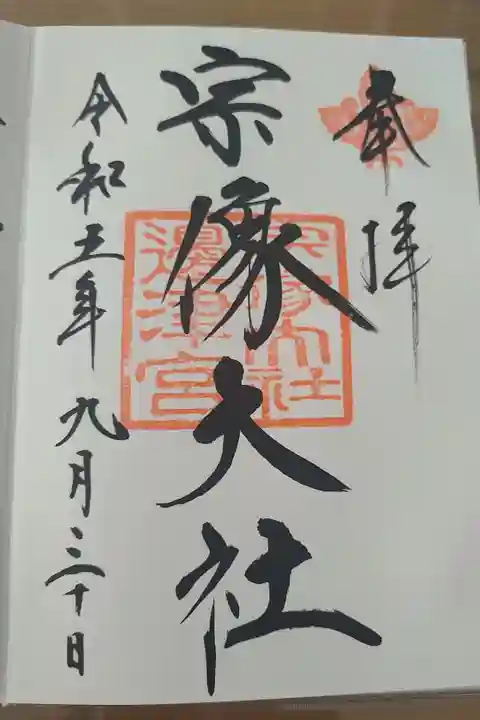 奉拝
宗像大社
宗像大社
邊津宮
令和五年九月三十日